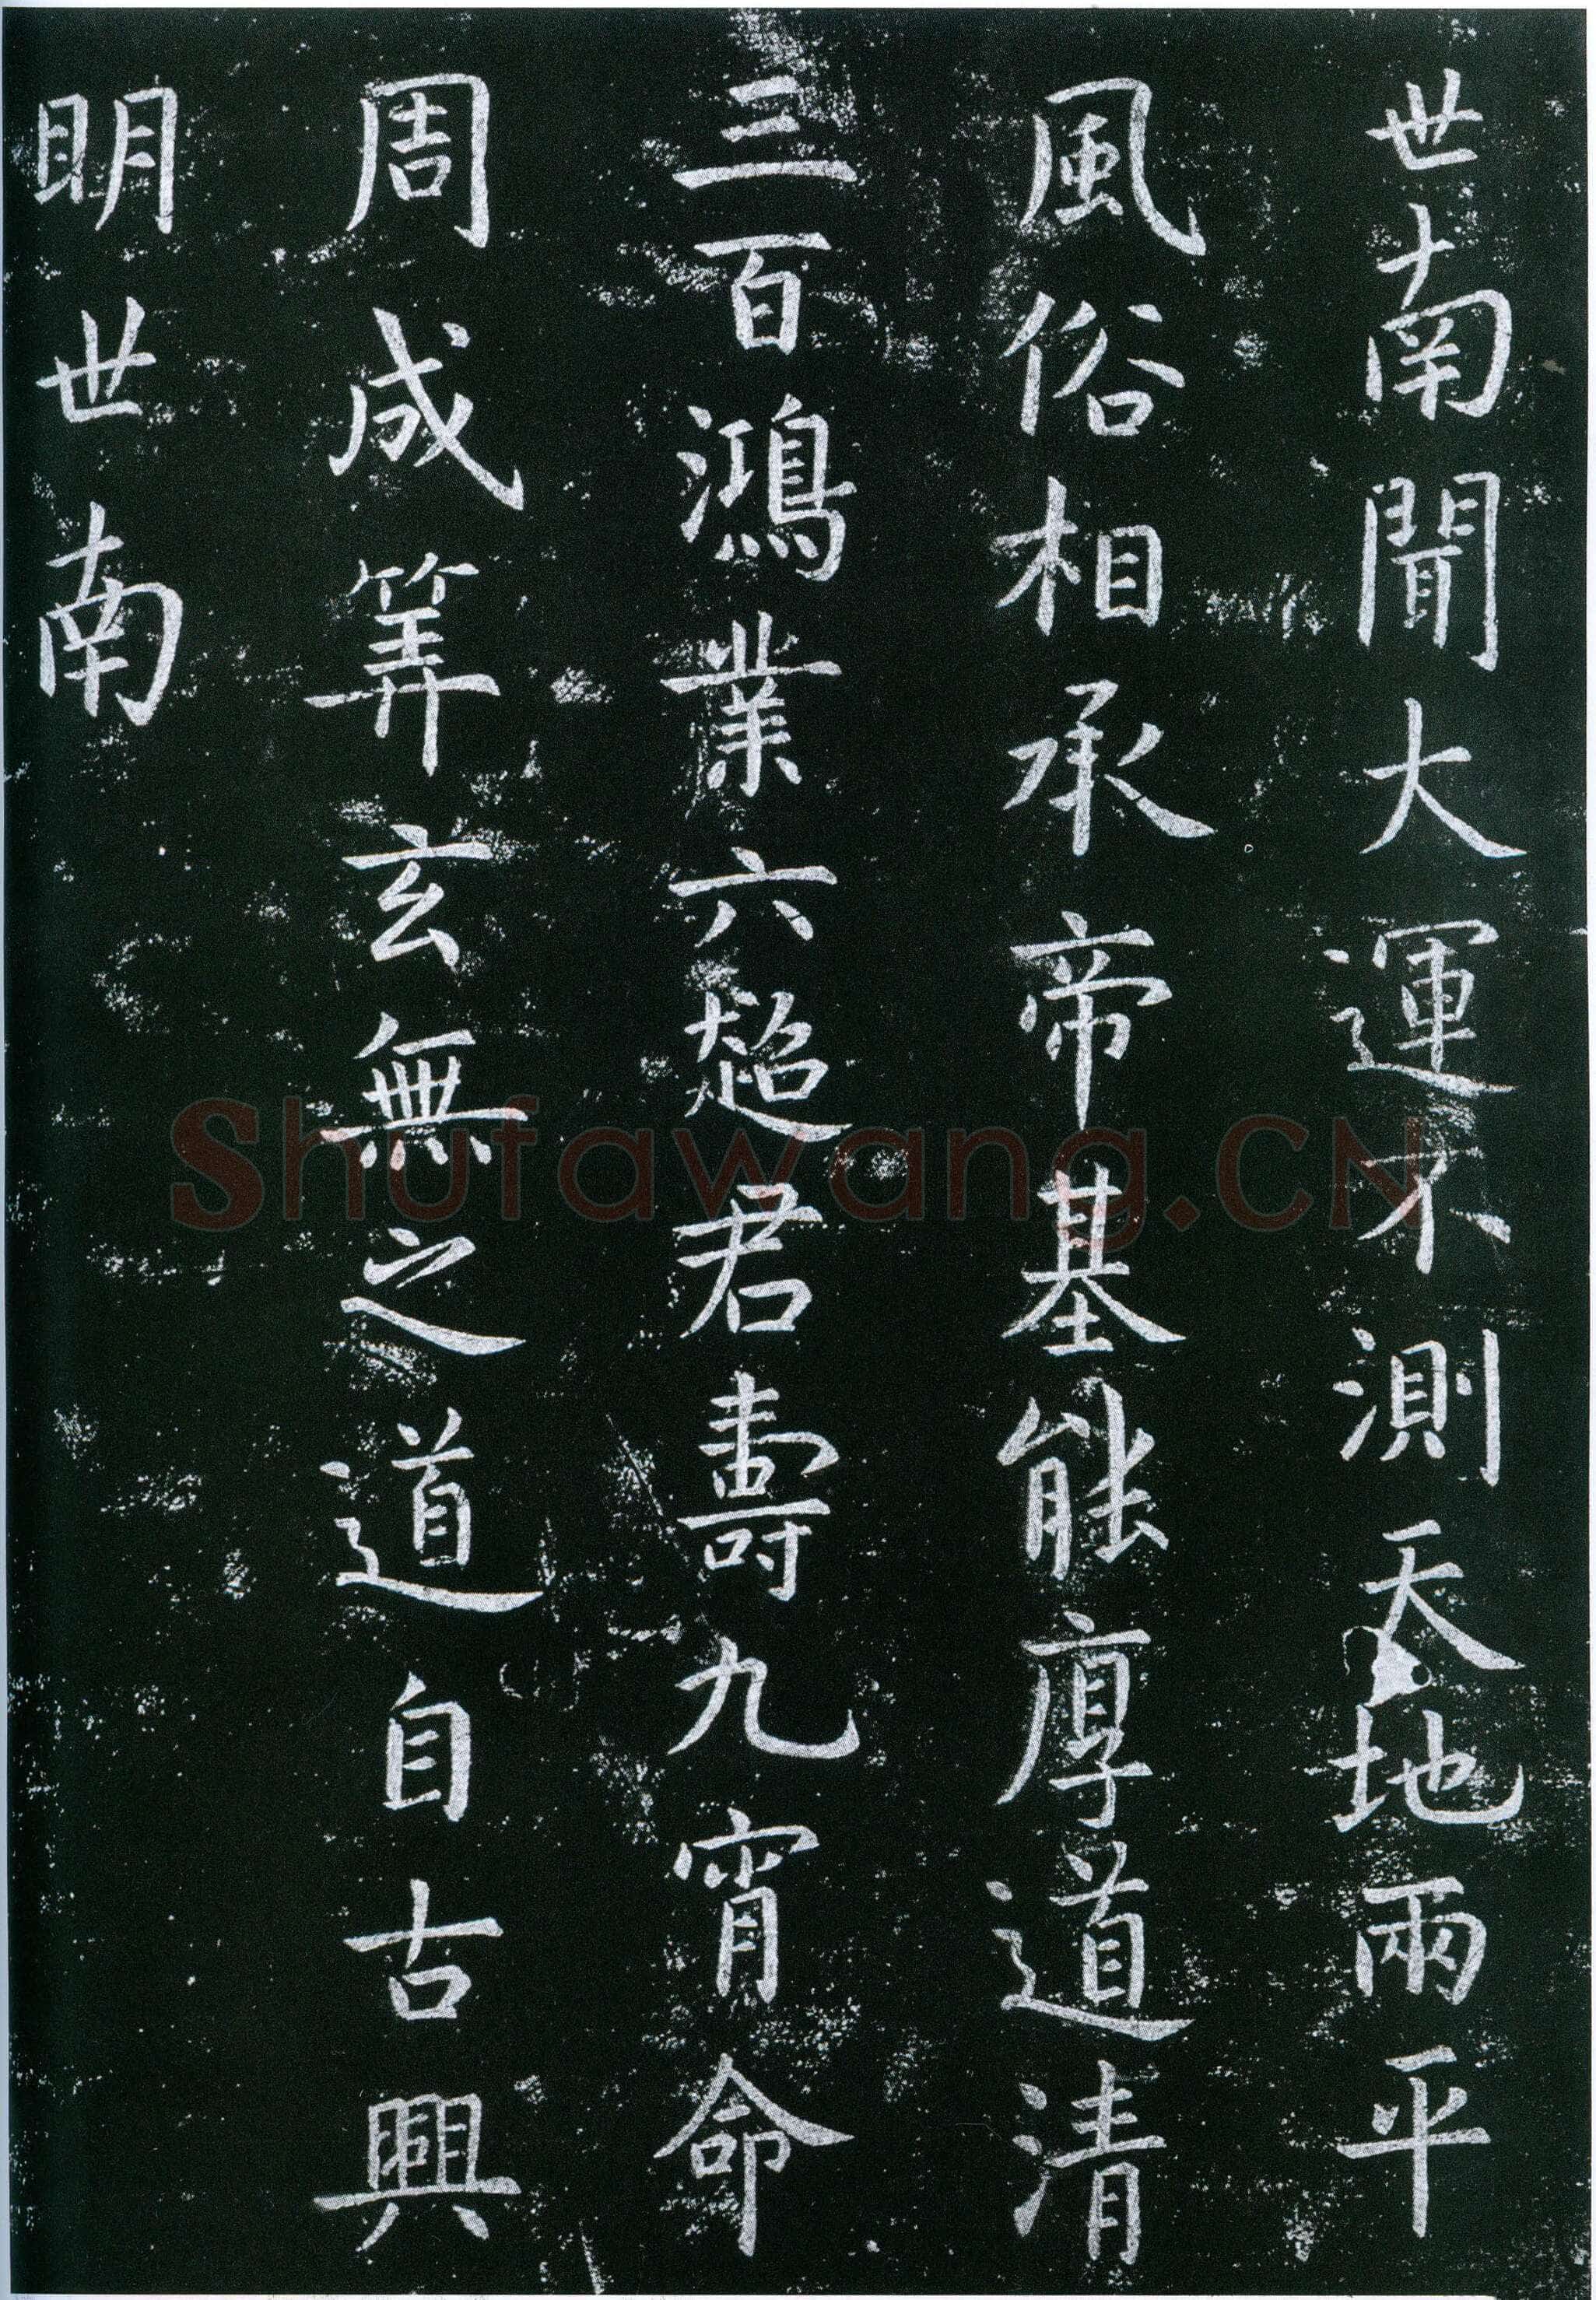 世南聞大運不測天地兩平
風俗相承帝基能厚道清
三百鴻業六超君壽九宵命
周成筭玄無之道自古興
明世南
Shufawang.CN